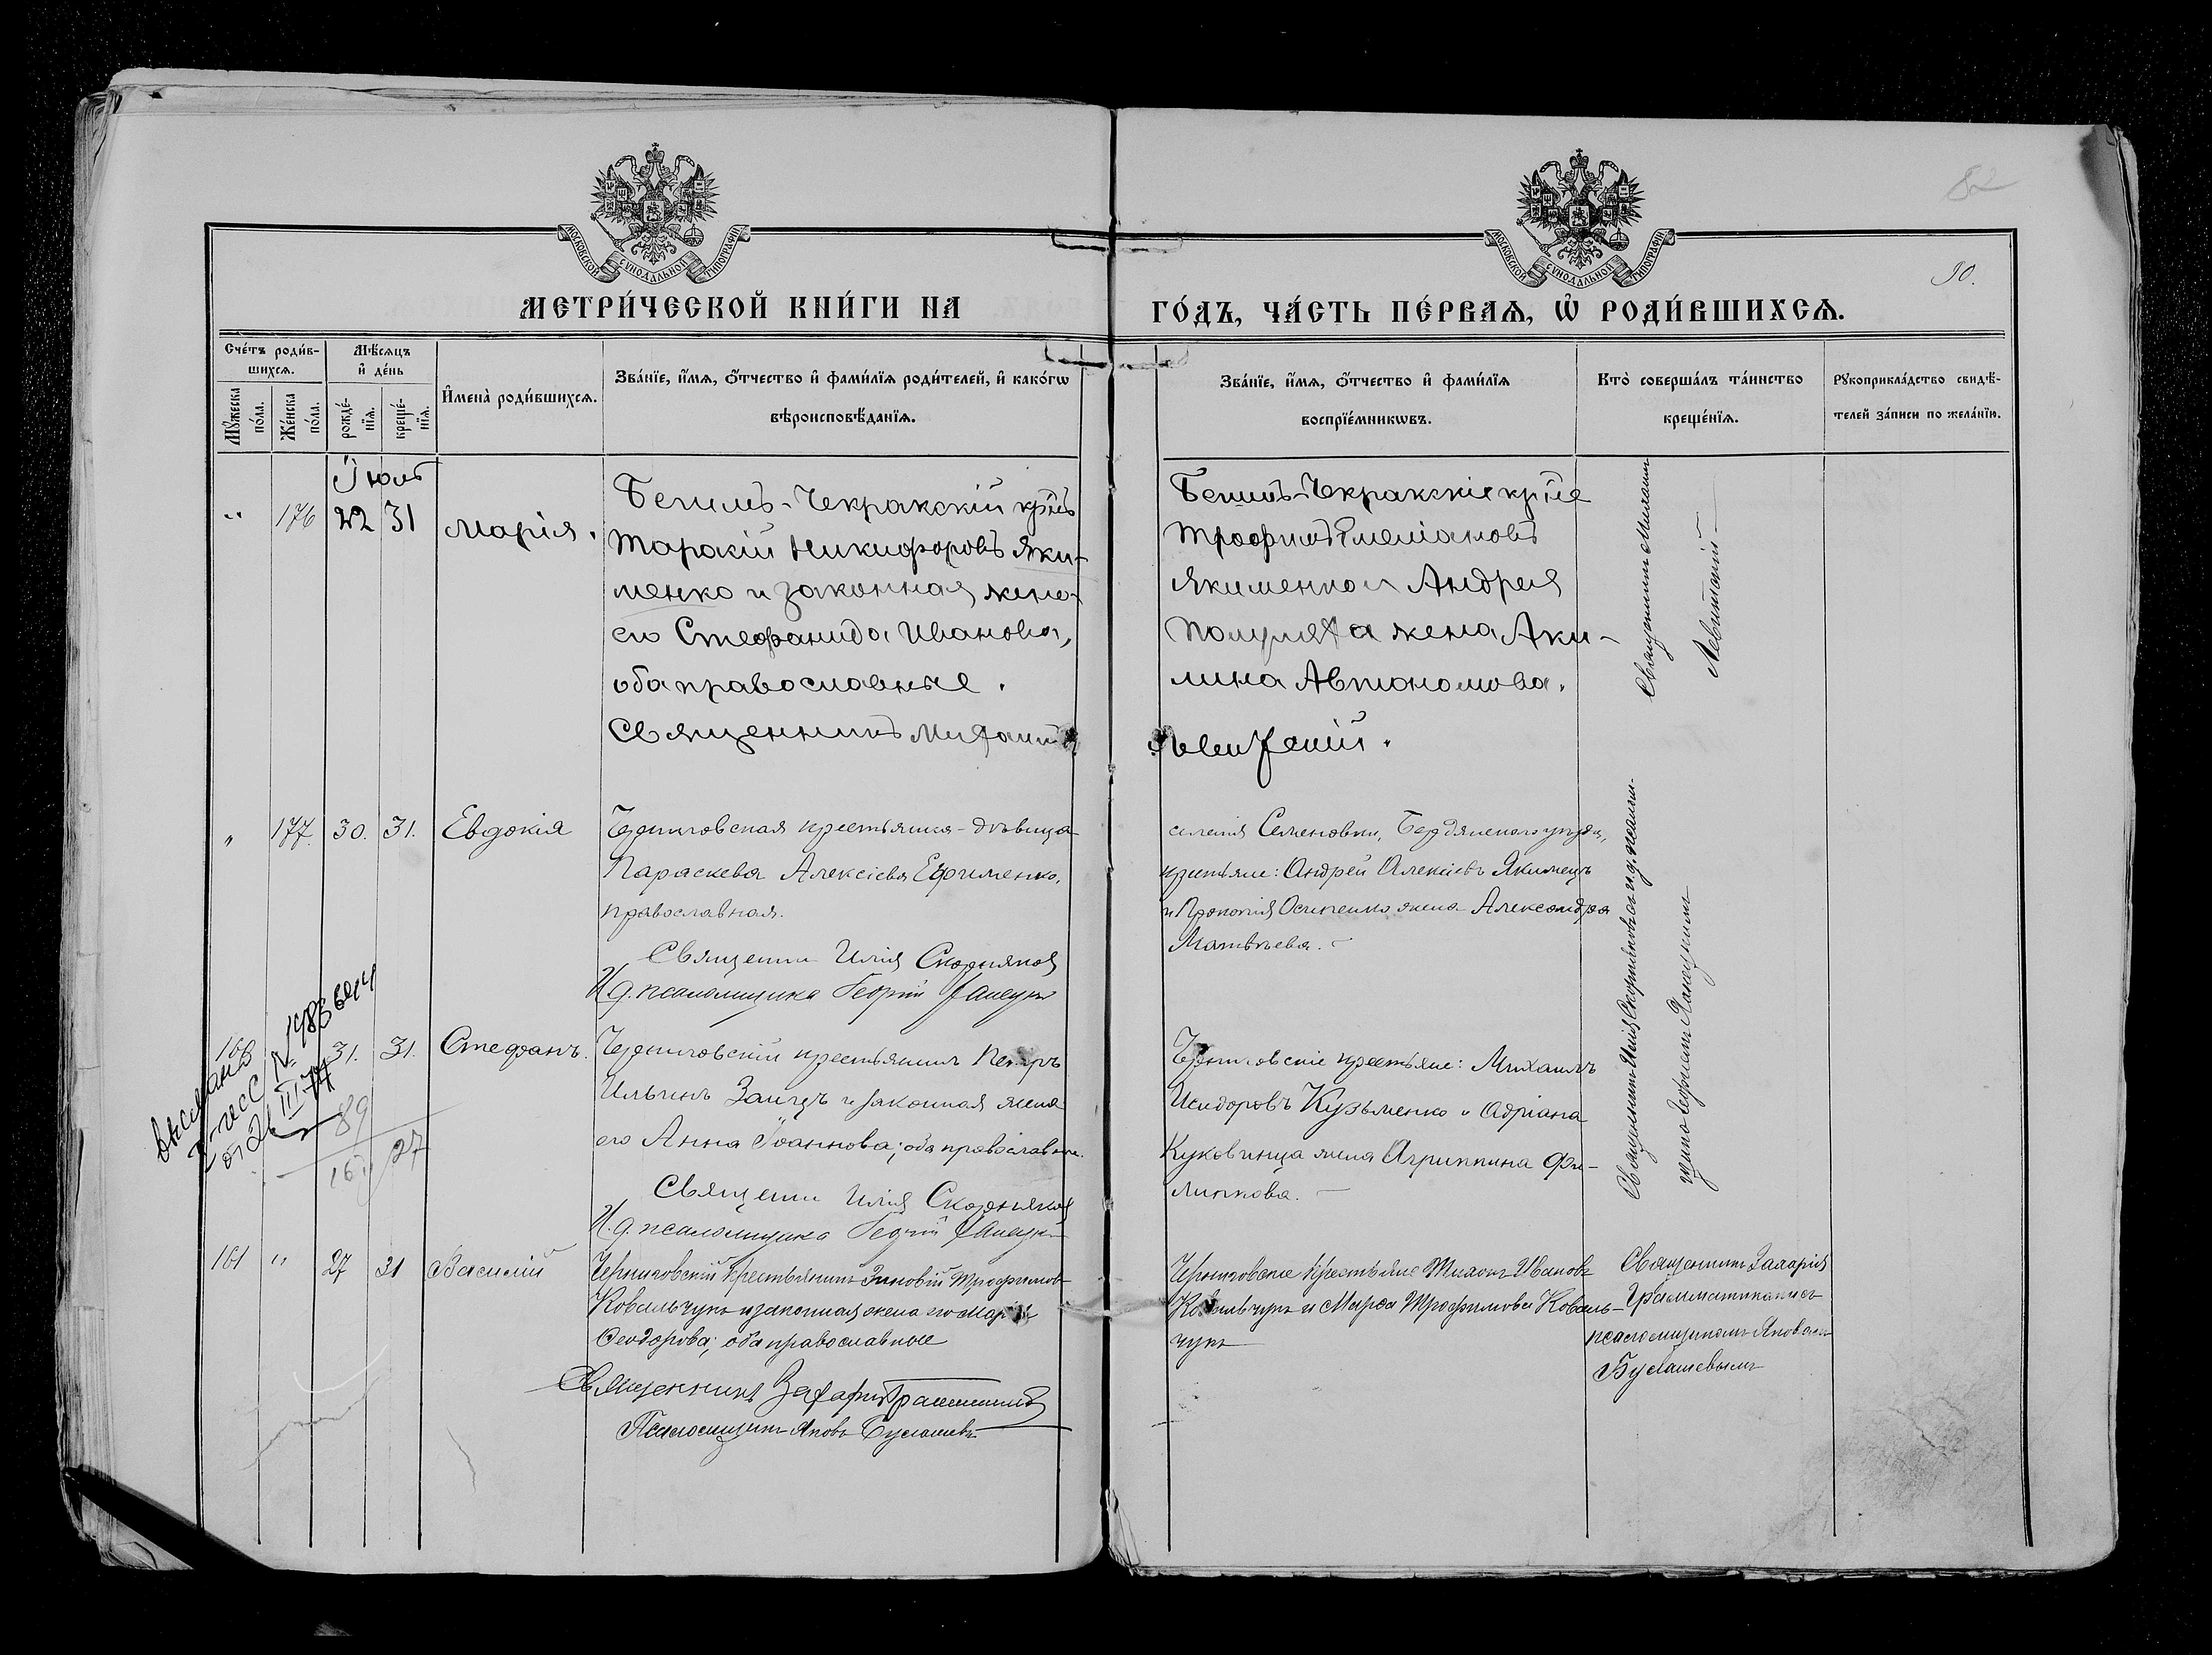 82
90.
МОСКОВСКОЙ СѴНОДАЛЬНОЙ ТИПОГРАФІИ
МОСКОВСКОЙ СѴНОДАЛЬНОЙ ТИПОГРАФІИ
МЕТРИ́ЧЕСКОЙ КНИ́ГИ НА
ГО́ДЪ, ЧА́СТЬ ПЕ́РВАѦ, Ѡ҆ РОДИ́ВШИХСѦ.
Сче́тъ роди́в-
шихсѧ.
Мѣ́сѧцъ
и҆ де́нь
Мꙋ́жеска
по́ла.
Же́нска
по́ла.
рожде́-
нїѧ.
креще́-
нїѧ.
И҆мена̀ роди́вшихсѧ.
Зва́нїе, и҆́мѧ, ѻ҆́тчество и҆ фами́лїѧ роди́телей, и҆ како́гѡ
вѣроисповѣ́данїѧ.
Зва́нїе, и҆́мѧ, ѻ҆́тчество и҆ фами́лїѧ
воспрїе́мникѡвъ.
Кто̀ соверша́лъ та́инство
креще́нїѧ.
Рꙋкоприкла́дство свидѣ́-
телей за́писи по жела́нїю.
Іюль
" 176 22 31 Марія.
Бегимъ-Чекракскій
Тарасій Никифоровъ Яки-
менко и законная жена
его Стефанида Иванова,
оба православные.
Священникъ Михаилъ
Бегимъ-Чекракскіе
Трофимъ Емеліановъ
Якименко и Андрея
жена Аки-
лина Автономова.
Левитскій.
Священникъ Михаилъ
Левитскій
" 177. 30. 31. Евдокія
Черниговская крестьянка-дѣвица
Параскева Алексіева Ефименко,
православная.
Священник Илія Скорняков
И.д. псаломщика Георгій
селенія Семеновки, Бердянского уѣзда,
крестьяне: Андрей Алексіевъ Якимецъ
и Прокопія Осипенко жена Александра
Матвѣева.
Священник Илія
Высланъ
от 26 III
160 31. 31. Стефанъ.
89
27
Черниговскій крестьянинъ Петръ
Ильинъ Заицъ и законная жена
его Анна Іоаннова; оба православные.
Священник Илія Скорняков
И.д. псаломщика Георгій
Черниговскіе крестьяне: Михаилъ
Исидоровъ Кузьменко и Адріана
Куковинца жена Агриппина Фи-
липпова.
161 " 27 31 Василій
Черниговскій крестьянинъ Зиновій Трофимовъ
Ковальчукъ и законная жена его Марія
Феодорова; оба православные
Священникъ Захарій
Псаломщикъ Яковъ Буслашевъ
Черниговские крестьяне Тихонъ Ивановъ
Ковальчукъ и Марфа Трофимова Коваль-
чукъ
Священникъ Захарія
Грамматикати съ
псаломщикомъ Яковомъ
Буслашевымъ